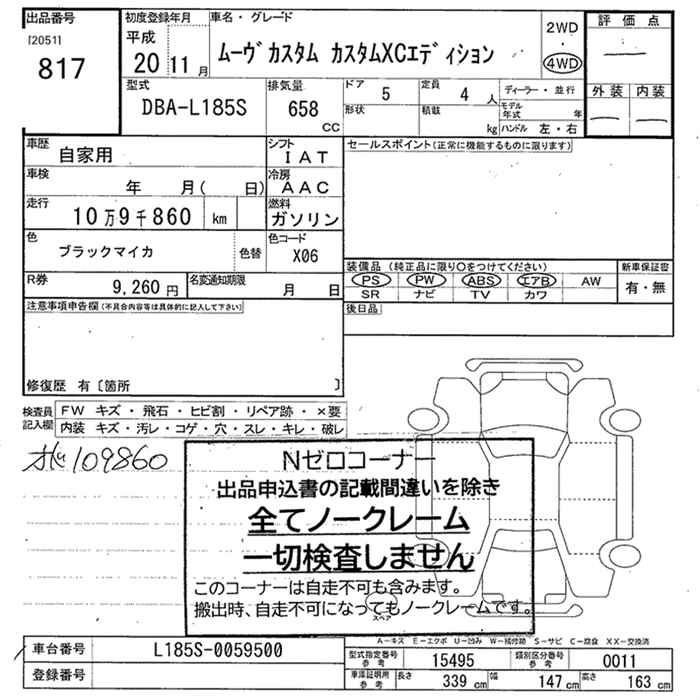 出品番号
[2051]
817
初度登録年月
平成
20 11 月
車名・グレード
ムーヴカスタム カスタムXCエディション
2WD
・
4WD
評価点
外装 内装
型式
DBA-L185S
排気量
658
CC
ドア 5
形状
定員 4 人
積載 kg
ディーラー・並行
モデル年式 年
ハンドル 左・右
車歴
自家用
シフト
IAT
車検
年 月( 日)
冷房
AAC
走行
10万9千860 km
燃料
ガソリン
色
ブラックマイカ
色替
色コード
X06
R券
9,260 円
名変通知期限
月 日
セールスポイント(正常に機能するものに限ります)
装備品(純正品に限り○をつけてください)
PS PW ABS エアB AW
SR ナビ TV カワ
新車保証書
有・無
後日品
注意事項申告欄(不具合内容等は具体的に記入して下さい)
修復歴 有〔箇所 〕
検査員記入欄
FW キズ・飛石・ヒビ割・リペア跡・×要
内装 キズ・汚レ・コゲ・穴・スレ・キレ・破レ
109860
Nゼロコーナー
出品申込書の記載間違いを除き
全てノークレーム
一切検査しません
このコーナーは自走不可も含みます。
搬出時、自走不可になってもノークレームです。
スペア
A-キズ E-エクボ U-凹み W-補修跡 S-サビ C-腐食 XX-交換済
車台番号
L185S-0059500
登録番号
型式指定番号
参考
15495
類別区分番号
参考
0011
車庫証明用
参考
長さ 339 cm
幅 147 cm
高さ 163 cm